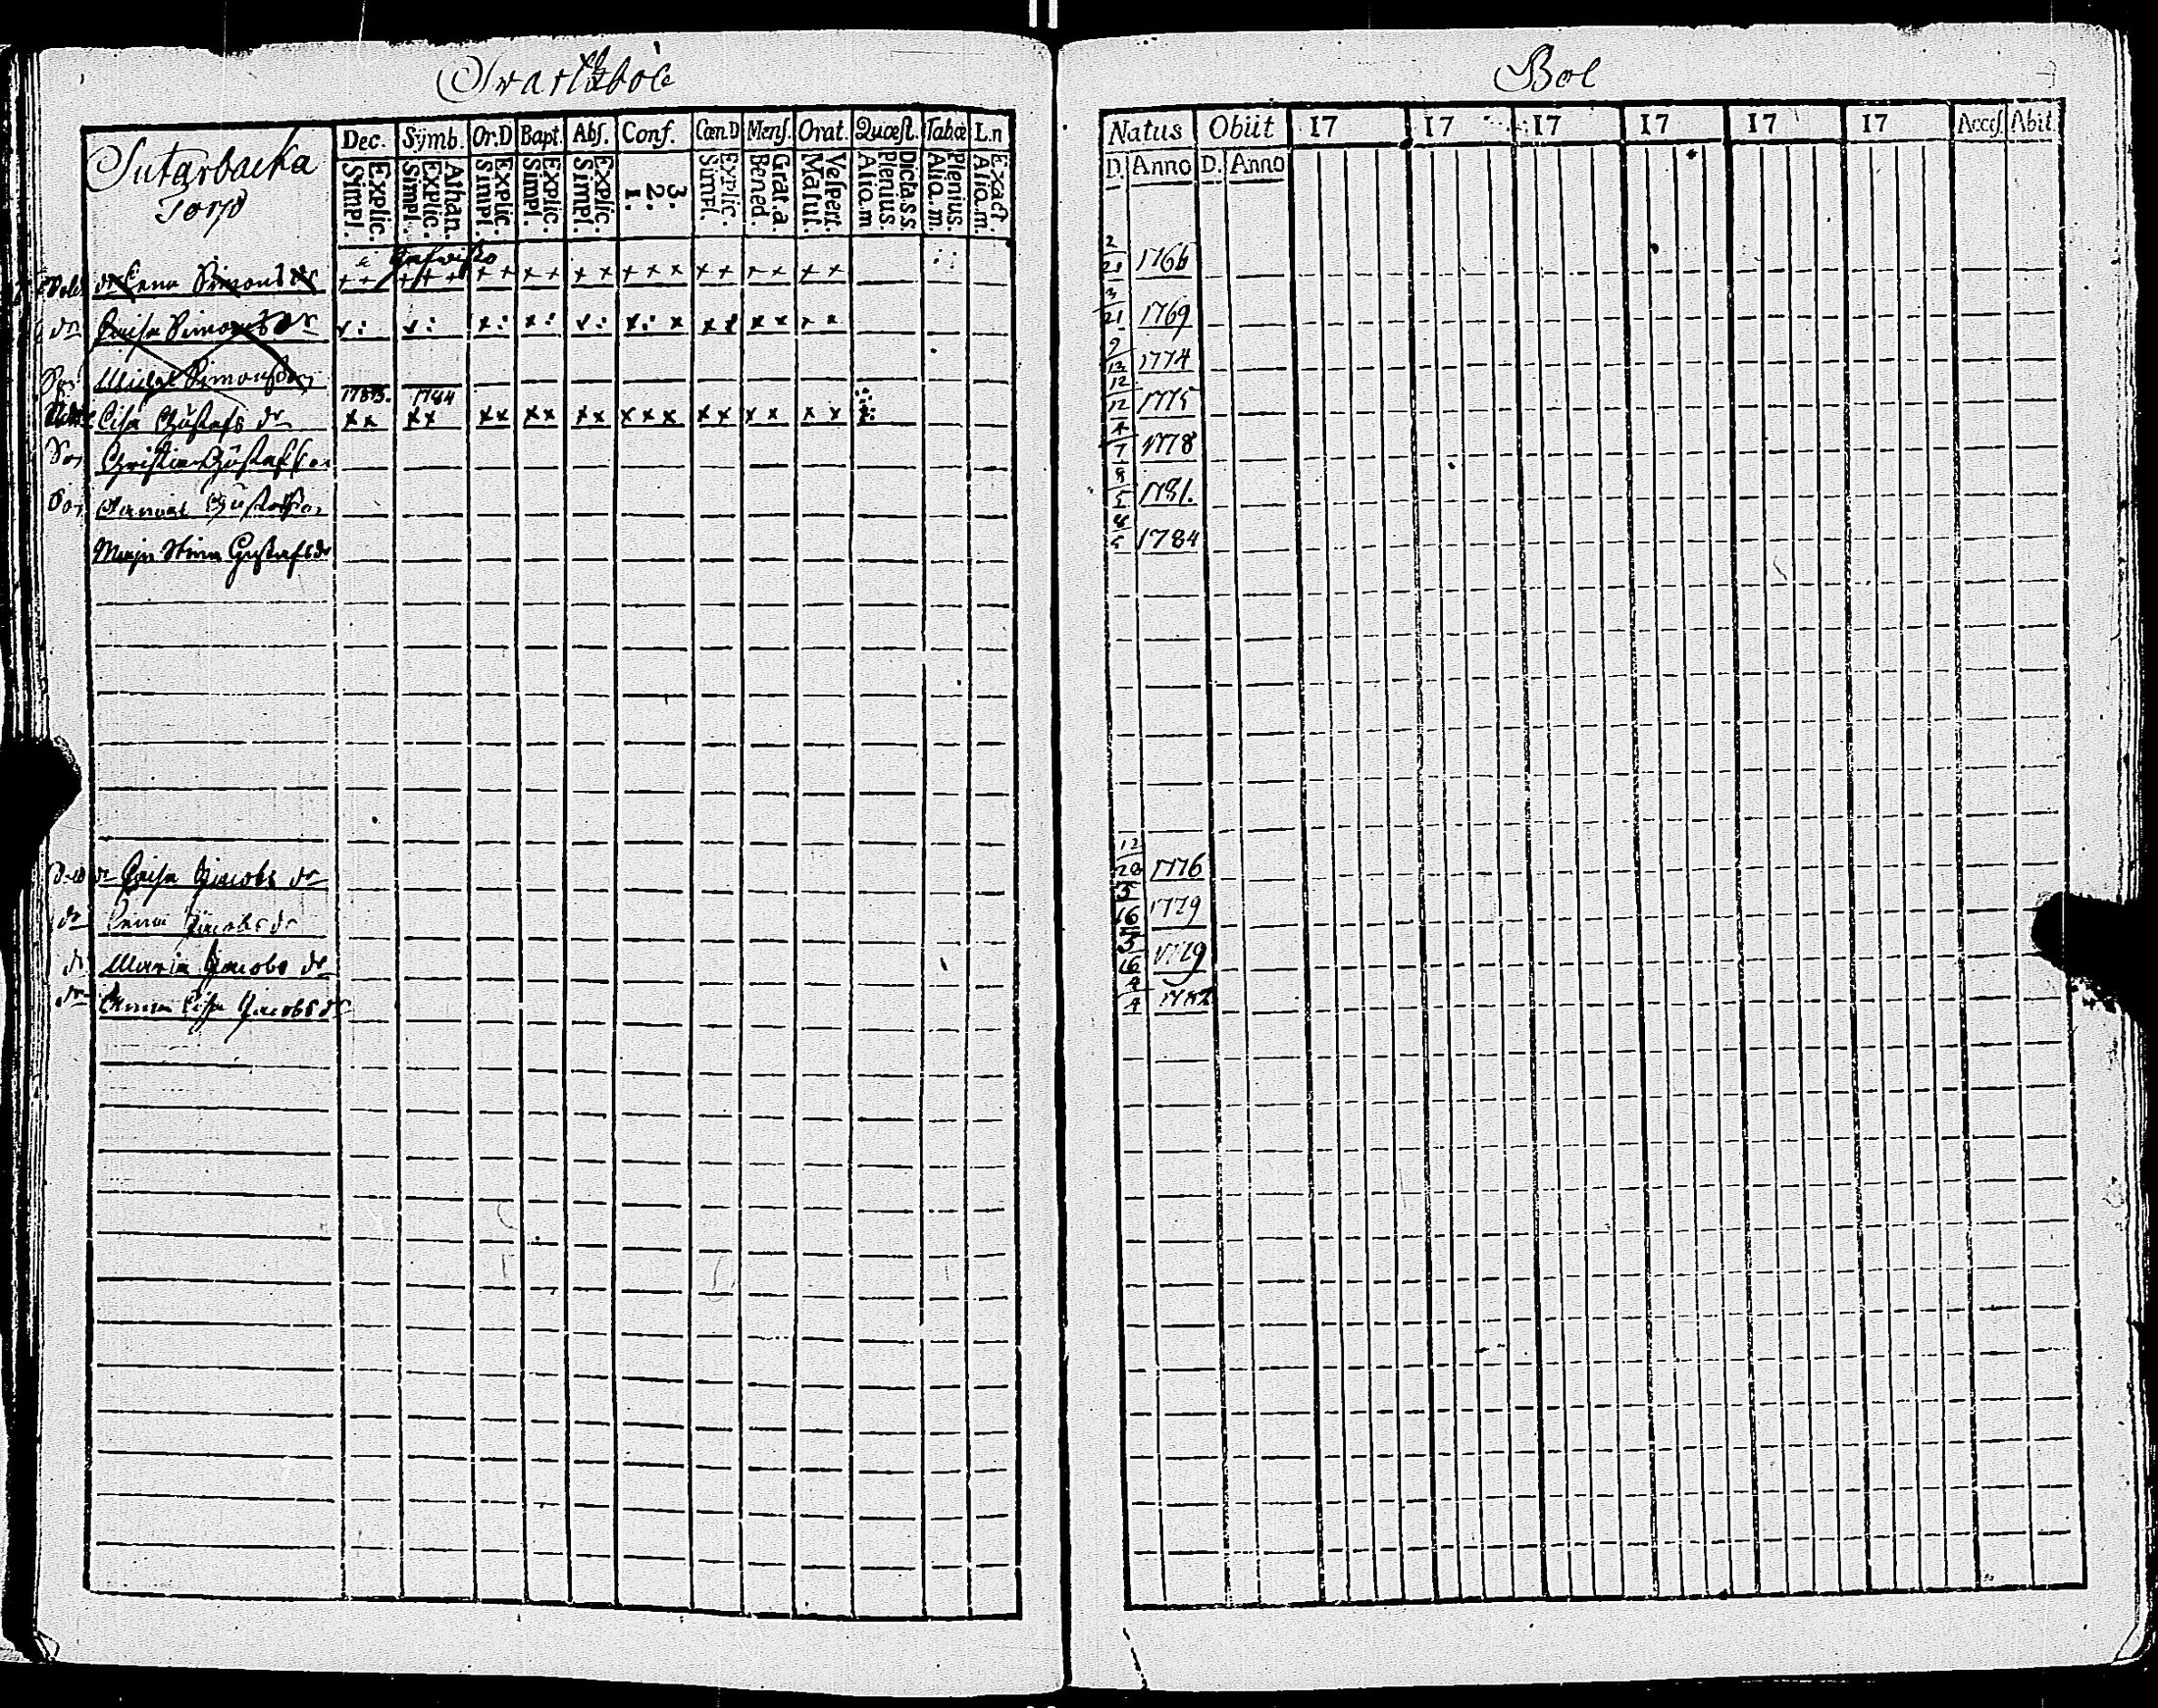 Svartsböle
Bol
Dec. Symb. Or.D Bapt. Abſ. Conf. Cœn.D Menſ. Orat. Quæſt. Tabæ L.n
Simpl. Explic. Simpl. Explic. Athan. Simpl. Explic. Simpl. Explic. Simpl. Explic. 1. 2. 3. Simpl. Explic. Bened. Grat.a Matut. Veſpert. Alia.m Plenius Dicta.s.s Alia.m. Plenius. Alia.m. Exact.
Natus Obiit 17 17 17 17 17 17 Acceſ. Abit
D. Anno D. Anno
Sutarbacka
Torp
dr Lena Simons dr + + + + + + + + + + + + + + + + + + + 2/21 1766
dr Caisa Simons dr 3/21 1769
Son Michel Simonsson 9/12 1774
1783. 1784
Lisa Gustafs dr x x x x x x x x x x x x x x x x x x x 12/12 1775
Son Christian Gustafsson 4/7 1778
Son Gustafsson 8/5 1781.
Maja Stina Gustafsdr 8/5 1784
dr Caisa Jacobs dr 12/20 1776
dr Jacobsdr 5/16 1779
dr Maria Jacobs dr 5/16 1779
dr Anna Lisa Jacobsdr 4/4 1782